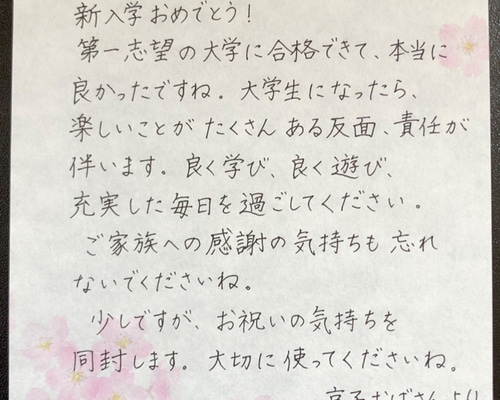 新入学おめでとう!
第一志望の大学に合格できて、本当に
良かったですね。大学生になったら、
楽しいことがたくさんある反面、責任が
伴います。良く学び、良く遊び、
充実した毎日を過ごしてください。
ご家族への感謝の気持ちも忘れ
ないでくださいね。
少しですが、お祝いの気持ちを
同封します。大切に使ってくださいね。
京子おばさんより